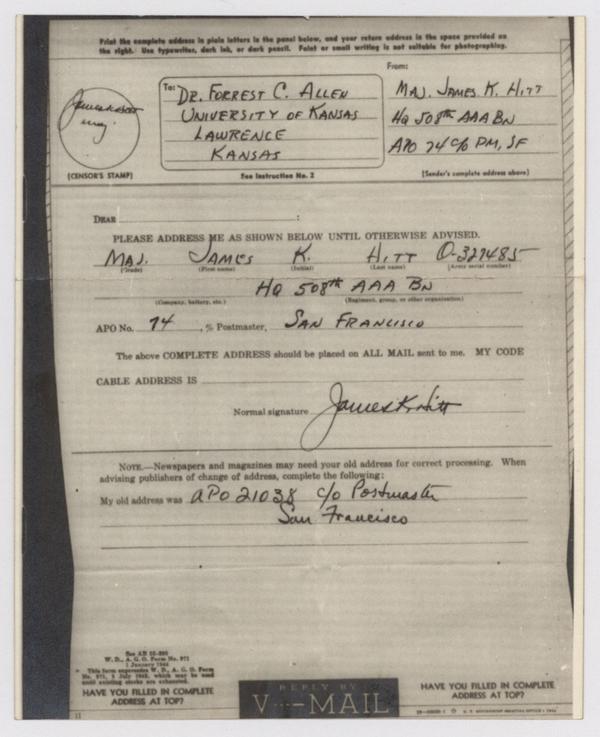 Print the complete address in plain letters in the panel below, and your return address in the space provided on
the right. Use typewriter, dark ink, or dark pencil. Faint or small writing is not suitable for photographing.
From:
To:
DR. FORREST C. ALLEN
UNIVERSITY OF KANSAS
LAWRENCE
KANSAS
MAJ. JAMES K. HITT
HQ 508th AAA BN
APO 74 C/O PM, SF
James K Hitt
Maj
(CENSOR'S STAMP)
See Instruction No. 2
(Sender's complete address above)
DEAR :
PLEASE ADDRESS ME AS SHOWN BELOW UNTIL OTHERWISE ADVISED.
MAJ. JAMES K. HITT O-327485
(Grade) (First name) (Initial) (Last name) (Army serial number)
HQ 508th AAA BN
(Company, battery, etc.) (Regiment, group, or other organization)
APO No. 74, % Postmaster, SAN FRANCISCO
The above COMPLETE ADDRESS should be placed on ALL MAIL sent to me. MY CODE
CABLE ADDRESS IS
Normal signature James K Hitt
NOTE.—Newspapers and magazines may need your old address for correct processing. When
advising publishers of change of address, complete the following:
My old address was APO 21038 c/o Postmaster
San Francisco
See AR
W. D., A. G. O. Form No. 971
1 January
This form supersedes W. D., A. G. O. Form
No. 971, 5 July 1942, which may be used
until existing stocks are exhausted.
HAVE YOU FILLED IN COMPLETE
ADDRESS AT TOP?
REPLY BY
V···—MAIL
HAVE YOU FILLED IN COMPLETE
ADDRESS AT TOP?
11
U. S. GOVERNMENT PRINTING OFFICE